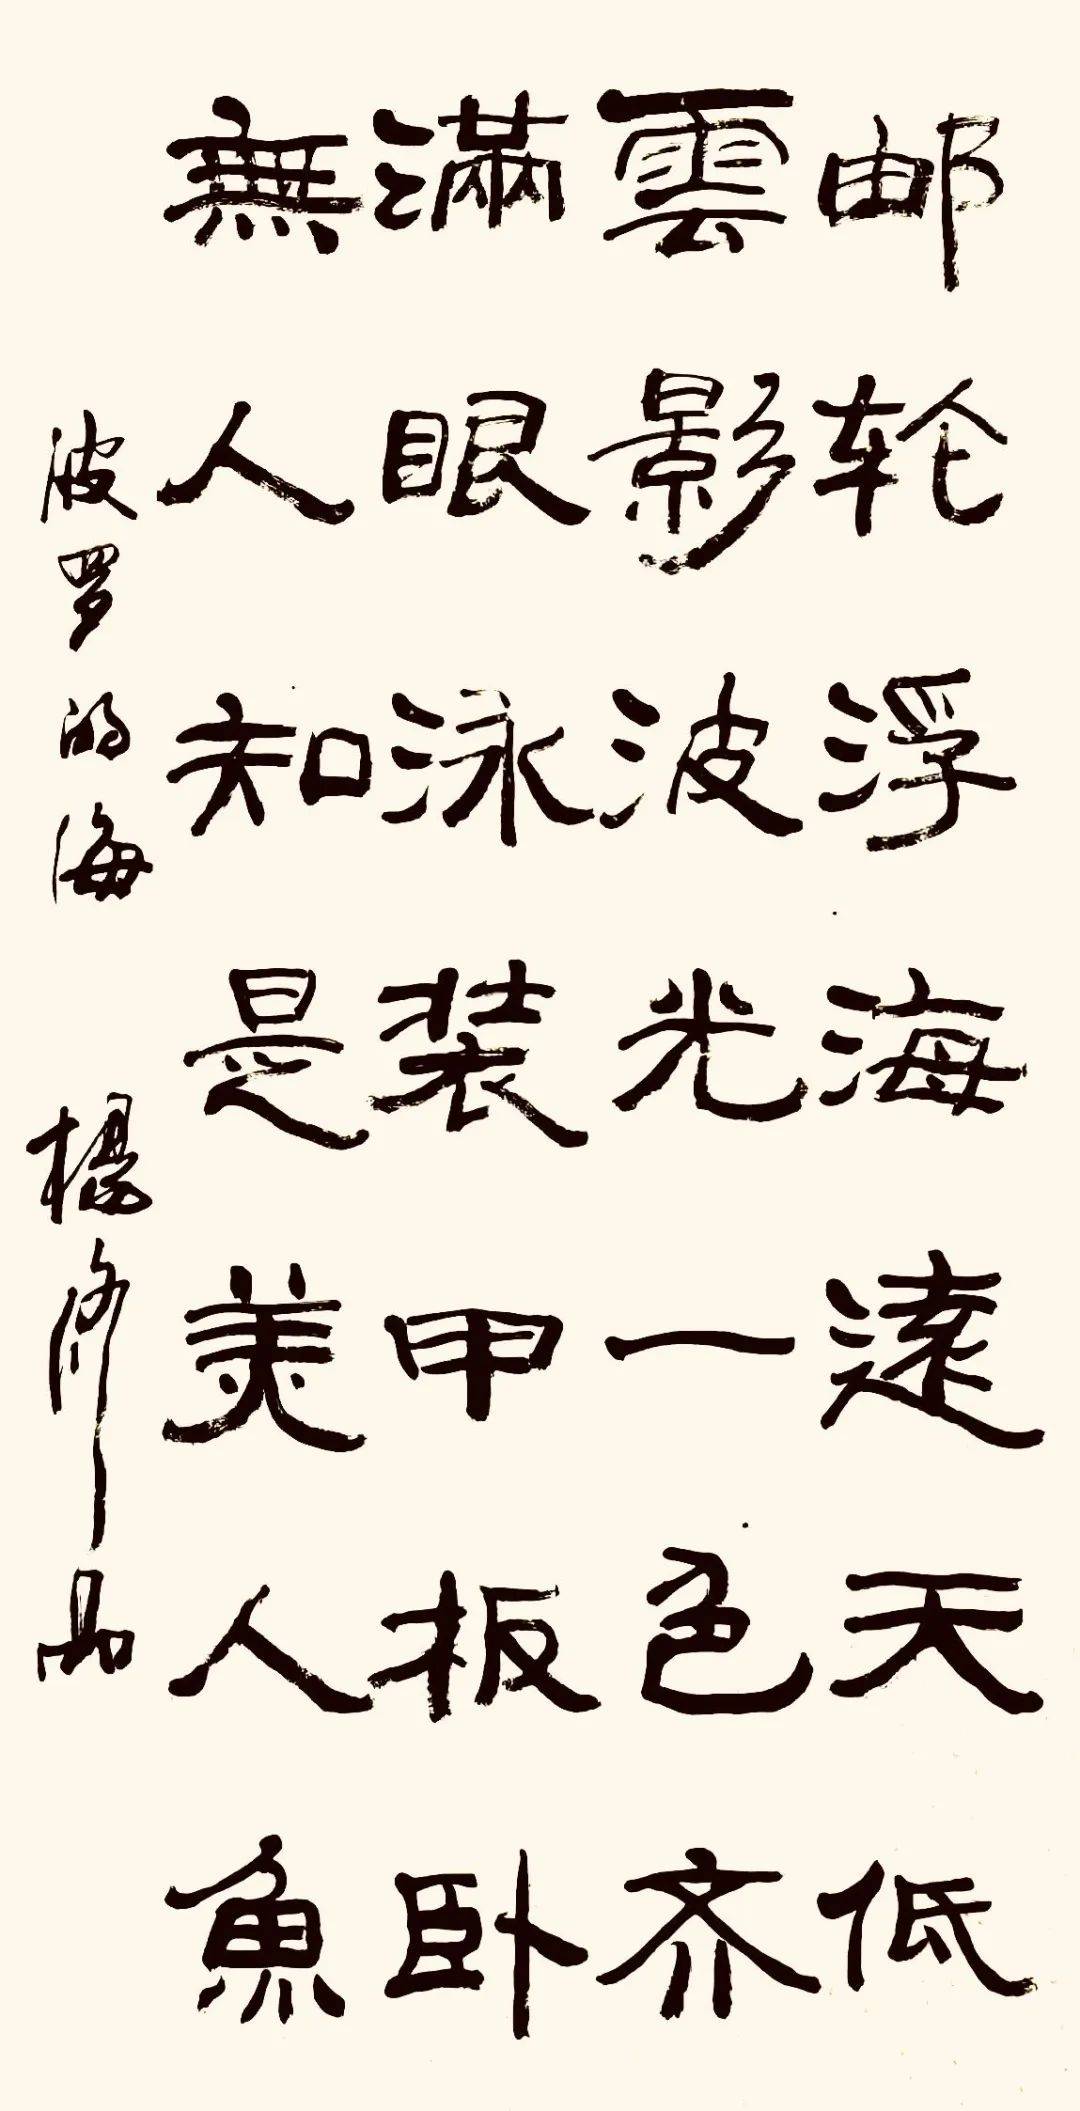 邮轮浮海遠天低
雲影波光一色齐
滿眼泳装甲板卧
無人知是美人魚
波罗的海 楊修品